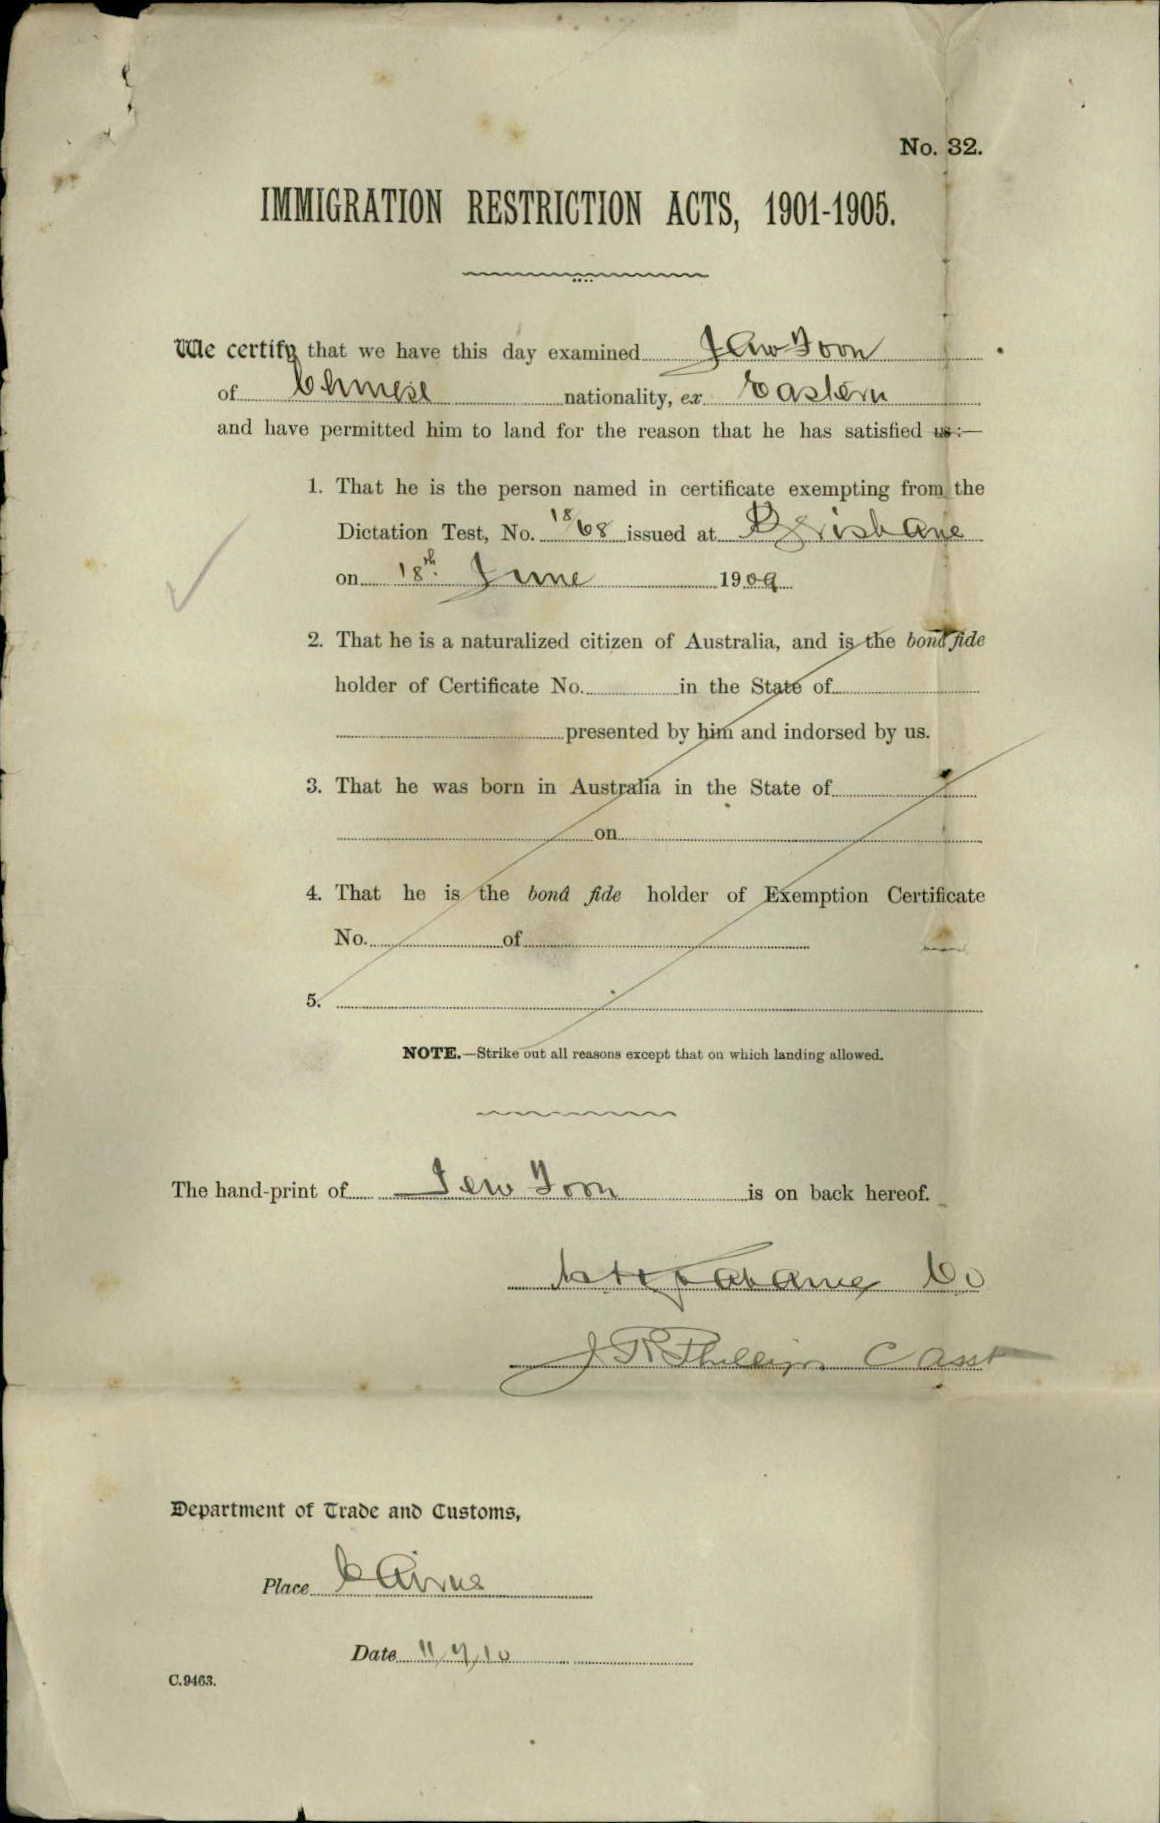 No. 32.
IMMIGRATION RESTRICTION ACTS, 1901-1905.
We certify that we have this day examined Jew Foon
of Chinese nationality, ex Eastern
and have permitted him to land for the reason that he has satisfied us:—
1. That he is the person named in certificate exempting from the
Dictation Test, No. 18/68 issued at Brisbane
on 18th June 1909
2. That he is a naturalized citizen of Australia, and is the bonâ fide
holder of Certificate No. in the State of
presented by him and indorsed by us.
3. That he was born in Australia in the State of
on
4. That he is the bonâ fide holder of Exemption Certificate
No. of
5.
NOTE.—Strike out all reasons except that on which landing allowed.
The hand-print of Jew Foon is on back hereof.
Co
J R Phillips C Asst
Department of Trade and Customs,
Place Cairns
Date 11/7/10
C.9463.